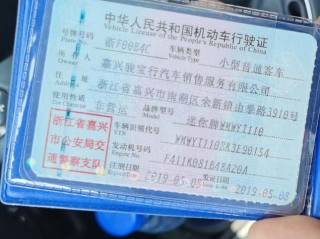 中华人民共和国机动车行驶证
Vehicle License of the People's Republic of China
号牌号码 浙FB0B4C 车辆类型 小型普通客车
Plate No. Vehicle Type
所有人 嘉兴骏宝行汽车销售服务有限公司
Owner
住址 浙江省嘉兴市南湖区余新镇由拳路3910号
Address
使用性质 非营运 品牌型号 迷你牌WMWYT110
Use Character Model
浙江省嘉兴市公安局交通警察支队
车辆识别代号
VIN
发动机号码
Engine No.
注册日期 2019-05-08 发证日期 2019-05-08